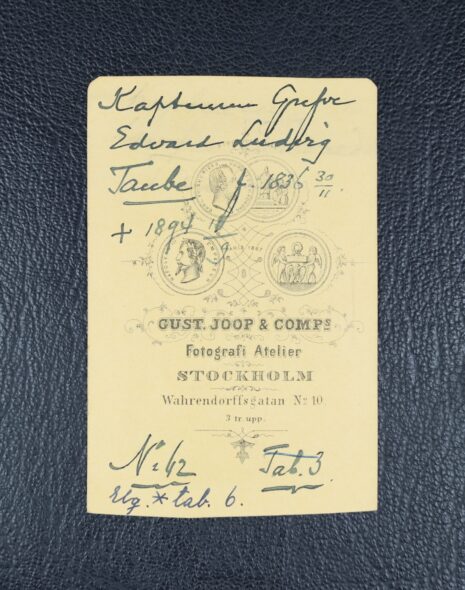 Kaptenen Grefve
Edvard Ludvig
Taube f. 1836 30/11.
+ 1894 /9
PARIS 1867
GUST. JOOP & COMPS
Fotografi Atelier
STOCKHOLM
Wahrendorffsgatan No 10.
3 tr. upp.
No 42 Tab. 3.
Elg. * tab. 6.